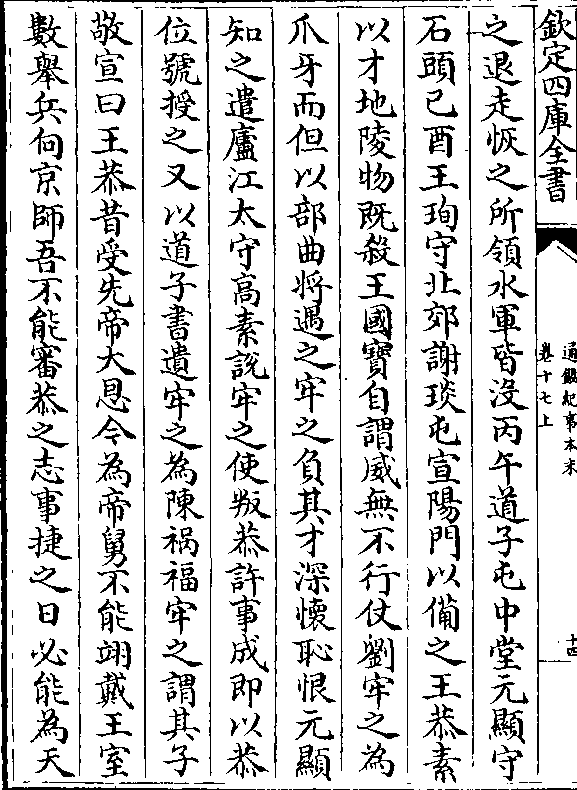 欽定四庫全書
通鑑紀事本末
卷十七上
十四
之退走恢之所領水軍皆没丙午道子屯中堂元顯守
石頭已酉王珣守北郊謝琰屯宣陽門以備之王恭素
以才地陵物既殺王國寶自謂威無不行仗劉牢之為
爪牙而但以部曲將遇之牢之負其才深懷恥恨元顯
知之遣廬江太守高素説牢之使叛恭許事成即以恭
位號授之又以道子書遺牢之為陳禍福牢之謂其子
敬宣曰王恭昔受先帝大恩今為帝舅不能翊戴王室
數舉兵向京師吾不能審恭之志事捷之日必能為天